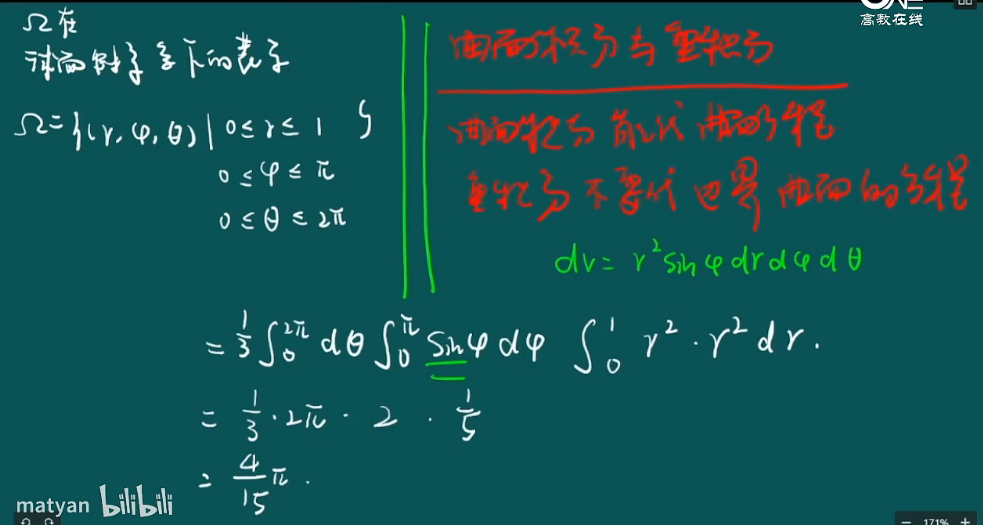 高教在线
Ω在
球面坐标系下的表示
Ω={(r, φ, θ) | 0 ≤ r ≤ 1 }
0 ≤ φ ≤ π
0 ≤ θ ≤ 2π
曲面积分与重积分
曲面积分 能代 曲面方程
重积分 不要代 边界 曲面的方程
dv = r² sin φ dr dφ dθ
= 1/3 ∫₀^{2π} dθ ∫₀^π sin φ dφ ∫₀^1 r² · r² dr .
= 1/3 · 2π · 2 · 1/5
= 4/15 π .
matyan bilibili
171%